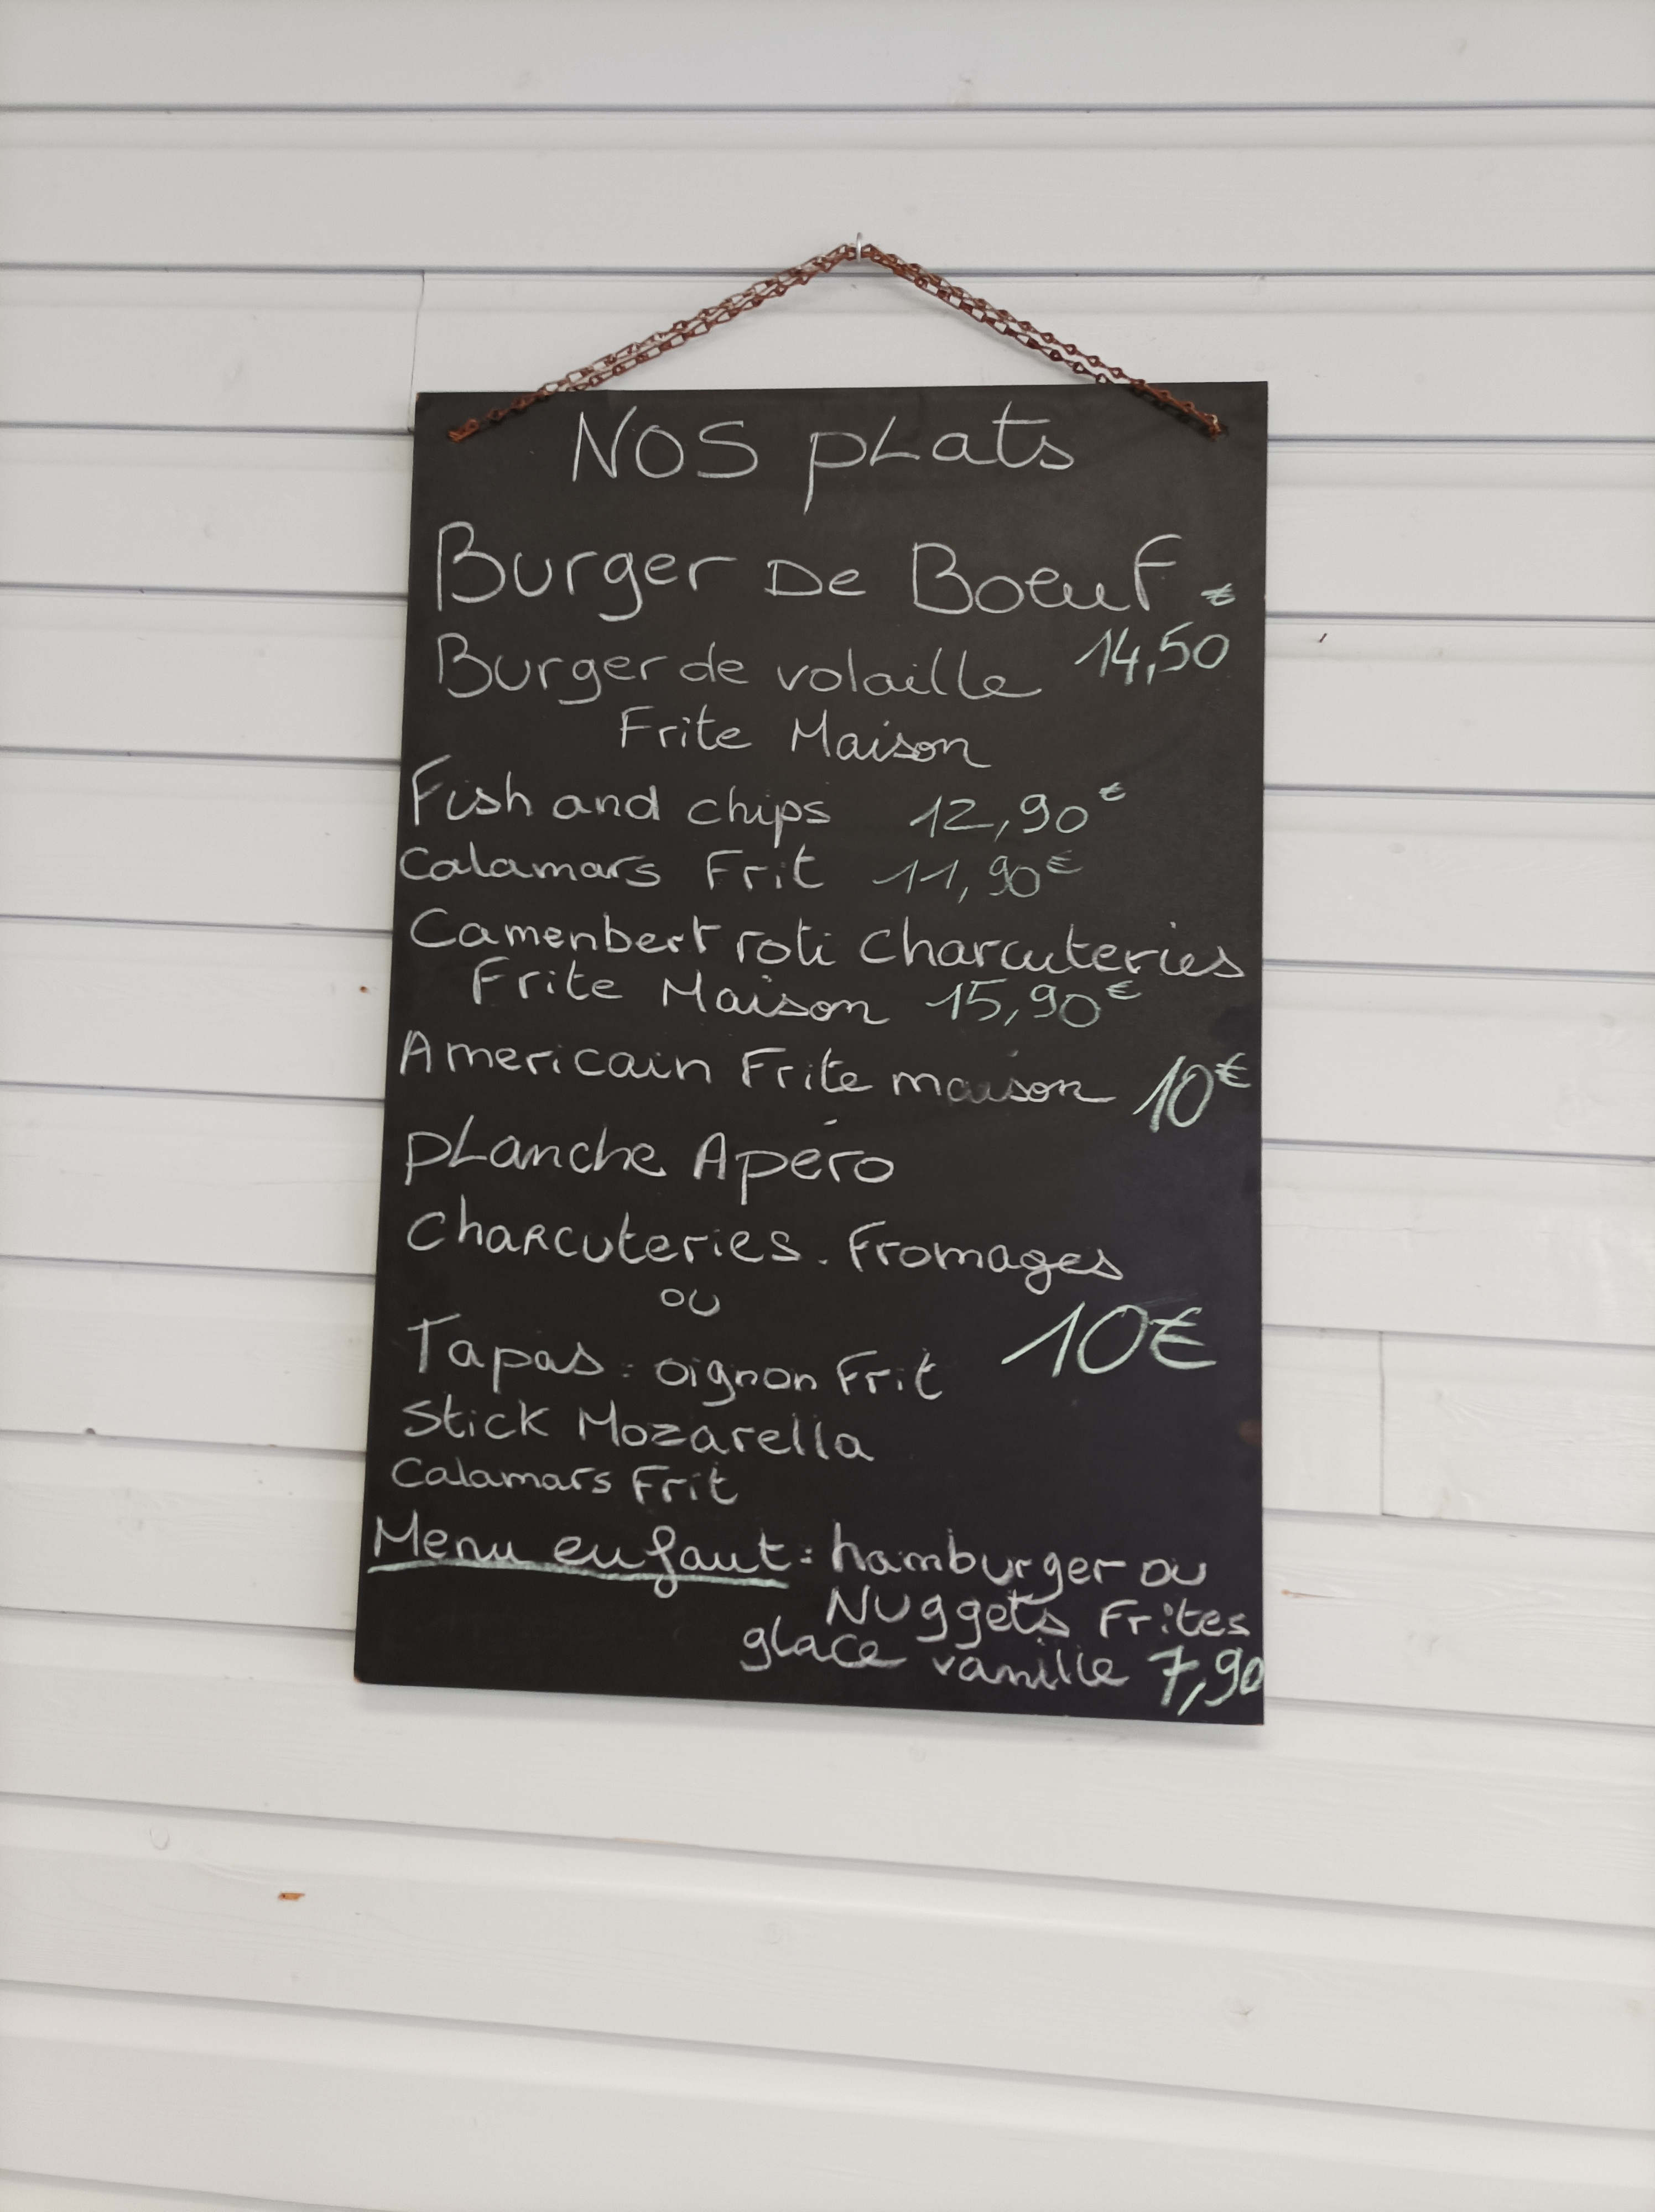 NOS pLats
Burger De Boeuf
€
14,50
Burger de volaille
Frite Maison
Fish and chips 12,90€
Calamars Frit 11,90€
Camenbert roti Charcuteries
Frite Maison 15,90€
Americain Frite maison 10€
pLanche Apéro
CHARcuteries. Fromages
ou
10€
Tapas: oignon Frit
Stick Mozarella
Calamars Frit
Menu enfant: hamburger ou
Nuggets Frites
glace vanille 7,90